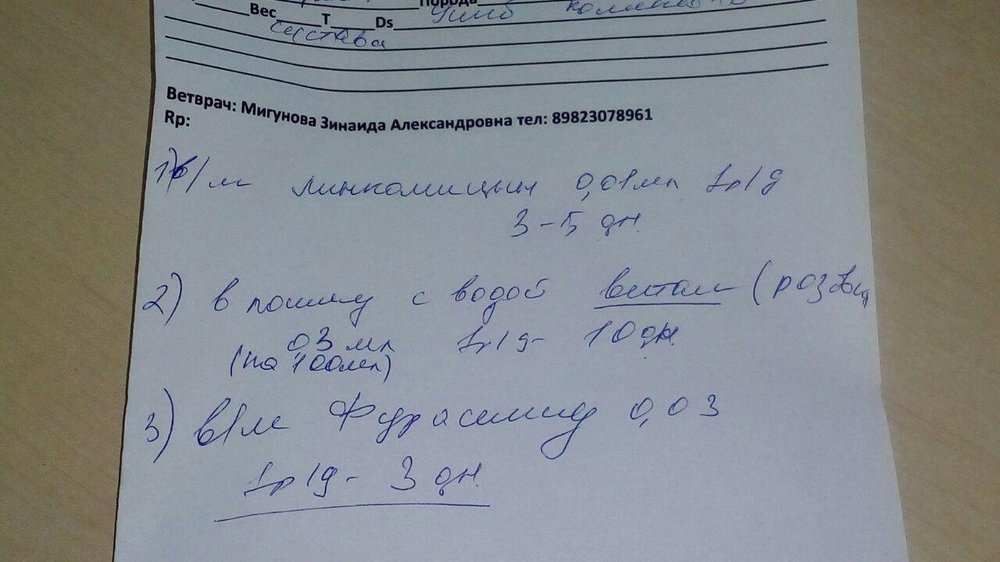 Порода
Вес Т Ds Ушиб коленного
сустава
Ветврач: Мигунова Зинаида Александровна тел: 89823078961
Rp:
1) в/м линкомицин 0,01мл 1р/д
3-5 дн.
2) в поилку с водой витам (розовый
03 мл 1р/д- 10дн.
(на 100мл)
3) в/м Фуросемид 0,03
1р/д- 3 дн.